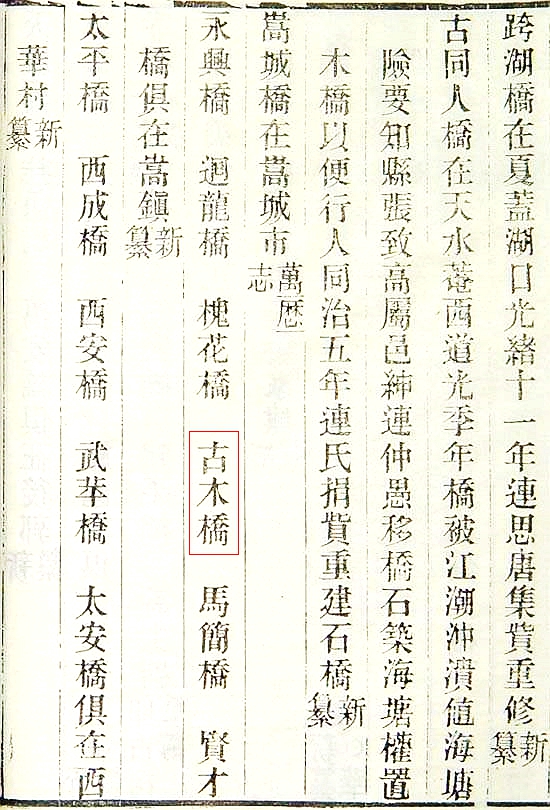 跨湖橋在夏蓋湖口光緒十一年連思唐集貲重修新纂
古同人橋在天水菴西道光季年橋被江潮沖潰值海塘
險要知縣張致高屬邑紳連仲愚移橋石築海塘權置
木橋以便行人同治五年連氏捐貲重建石橋新纂
嵩城橋在嵩城市萬曆志
永興橋 迴龍橋 槐花橋 古木橋 馬簡橋 賢才
橋俱在嵩鎮新纂
太平橋 西成橋 西安橋 武苹橋 太安橋俱在西
華村新纂